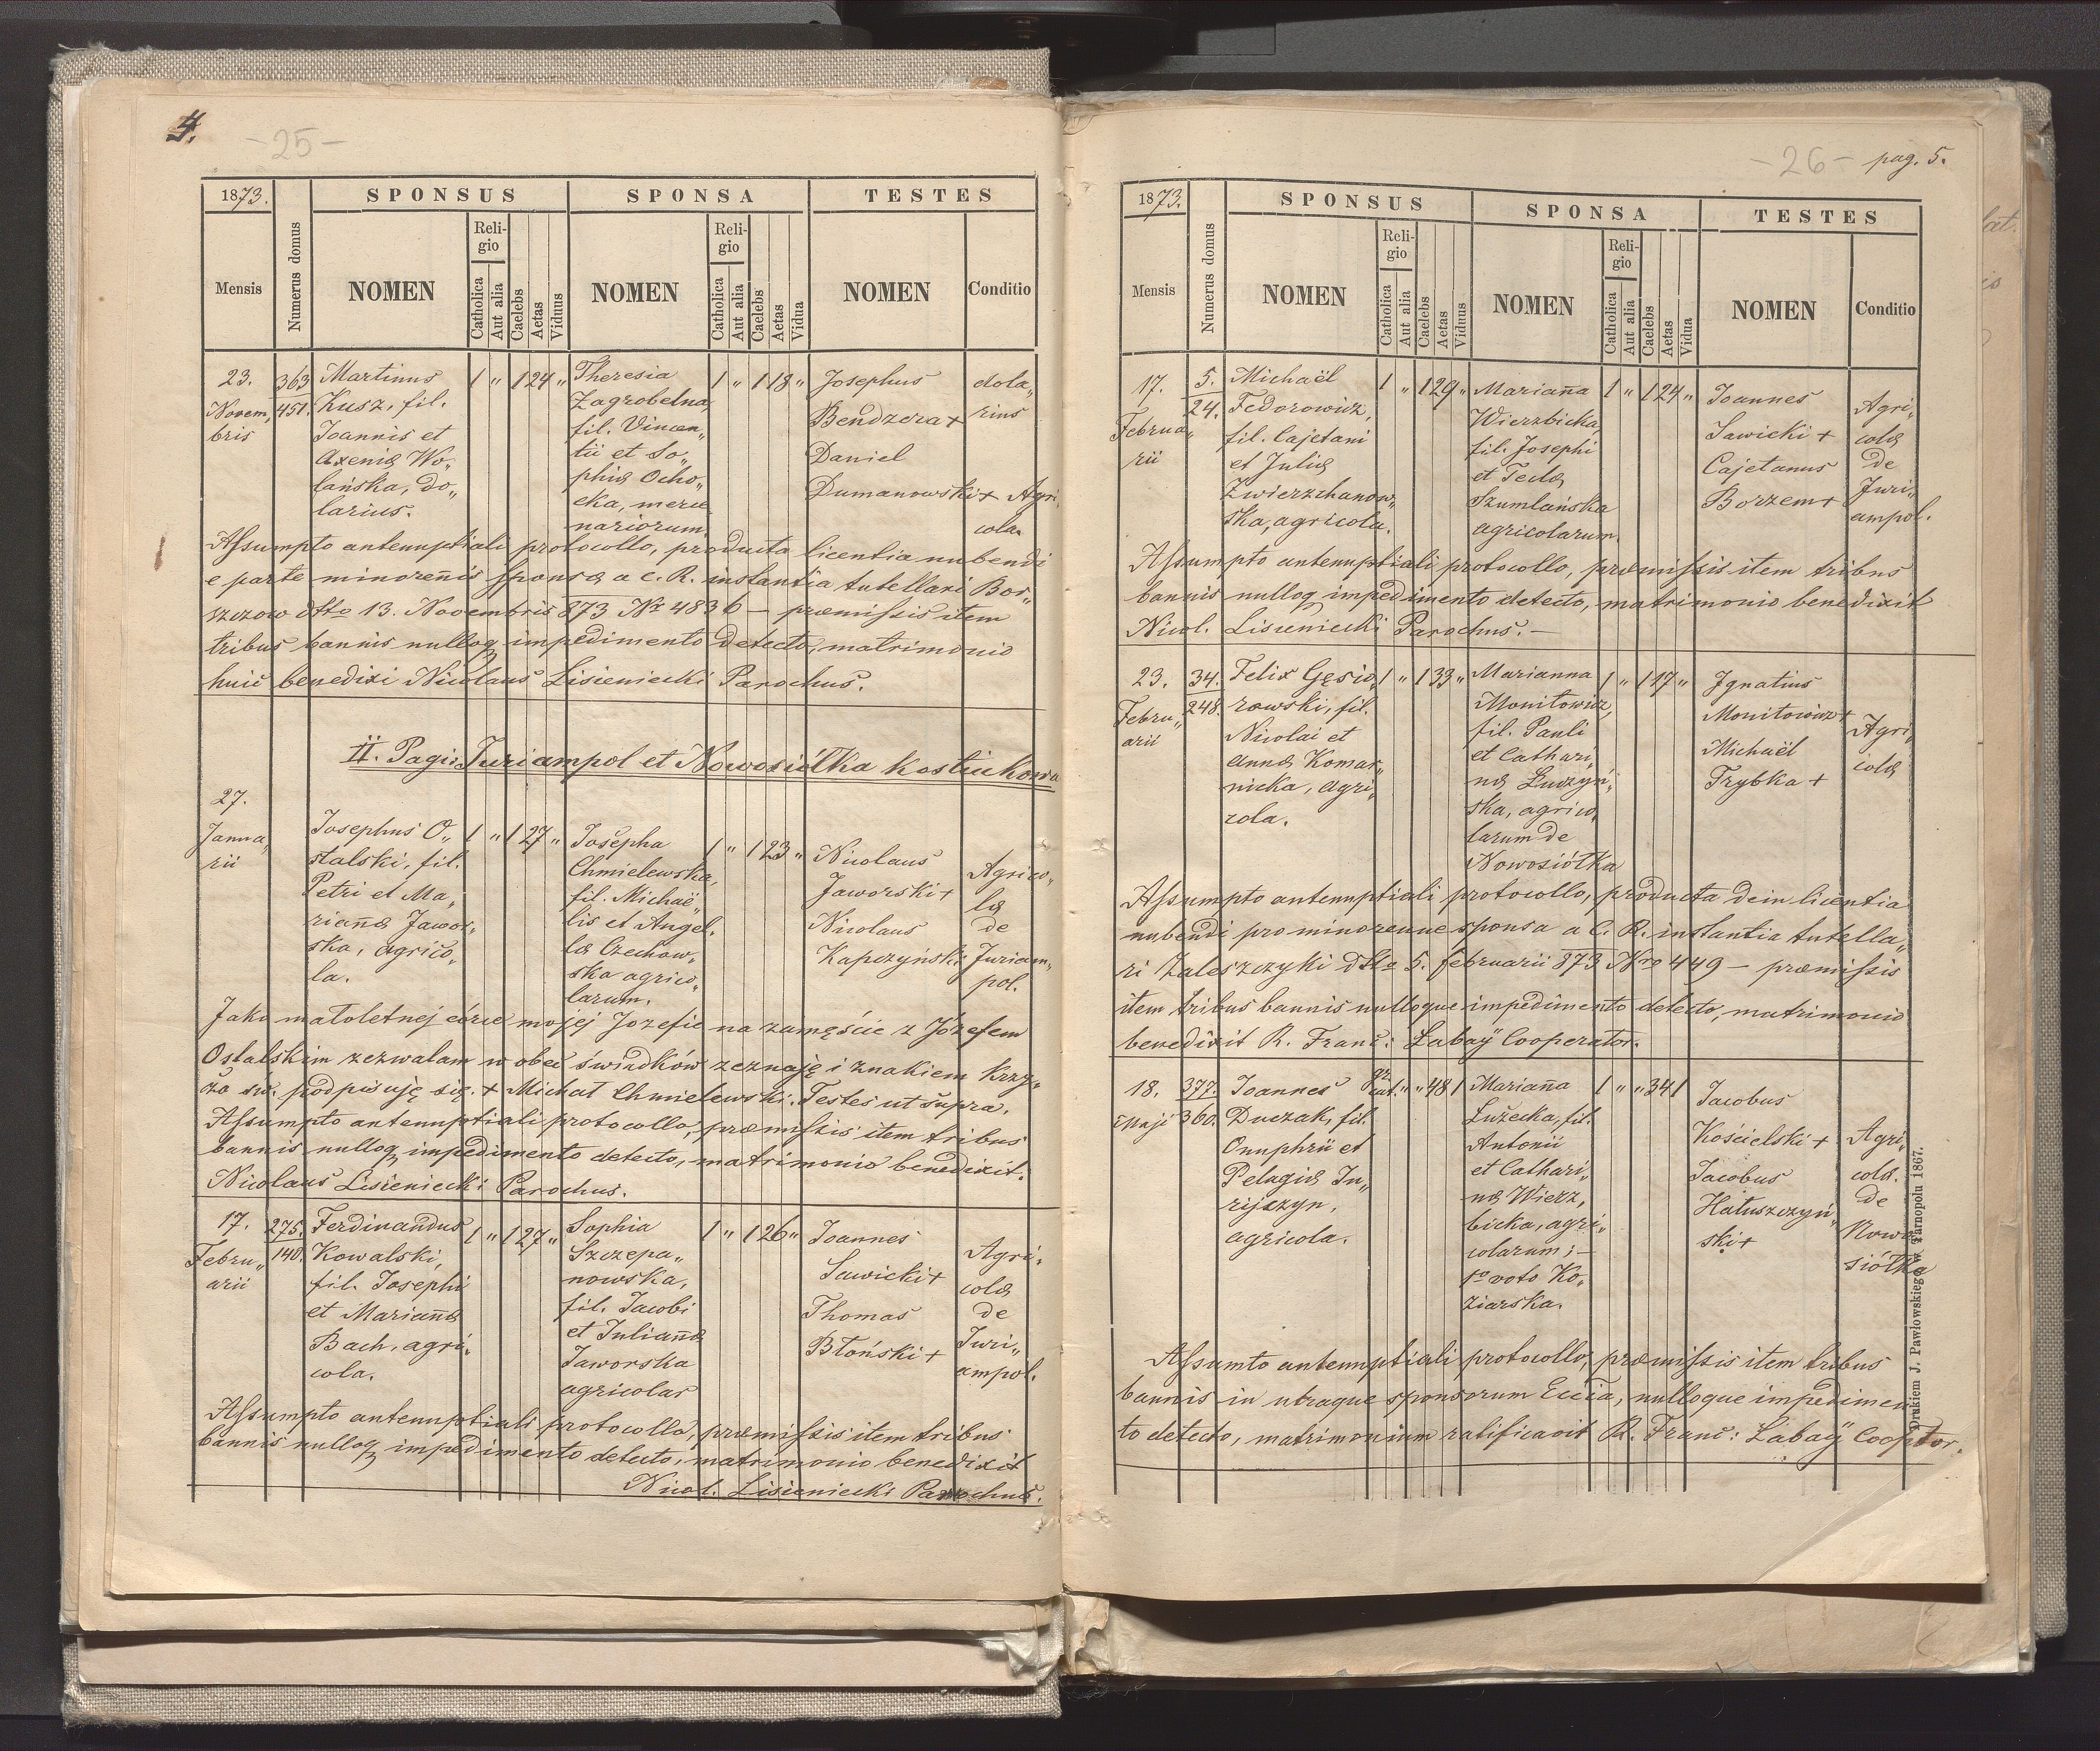 4.
- 25 -
1873.
SPONSUS
SPONSA
TESTES
Mensis
Numerus domus
NOMEN
Religio
Catholica
Aut alia
Caelebs
Aetas
Viduus
NOMEN
Religio
Catholica
Aut alia
Caelebs
Aetas
Vidua
NOMEN
Conditio
23.
Novem„
bris
363
451.
Martinus
Kusz, fil.
Joannis et
Axeniæ Wo„
lańska, do„
larius.
1 „ 1 24 „
Theresia
Zagrobelna,
fil. Vincen„
tii et So„
phiæ Ocho„
cka, merce
nariorum.
1 „ 1 18 „
Josephus
Bendzera +
Daniel
Dumanowski +
dola„
rius
Agri„
cola.
Assumpto antenuptiali protocollo, producta licentia nubendi
e parte minoreñis sponsæ a C. R. instantia tutellari Bor„
szczow dtto 13. Novembris 873 Nr 4836 — præmissis item
tribus bannis nulloq impedimento detecto, matrimonio
huic benedixi Nicolaus Lisieniecki Parochus.
II. Pagi: Juriampol et Nowosiółka kostiukowa
27.
Janua„
rii
Josephus O„
stalski, fil.
Petri et Ma„
riañæ Jawor„
ska, agrico„
la.
1 „ 1 27 „
Josepha
Chmielewska,
fil. Michaë„
lis et Angel„
læ Czechow„
ska agrico„
larum.
1 „ 1 23 „
Nicolaus
Jaworski +
Nicolaus
Kapczyński
Agrico„
læ
de
Juriam„
pol.
Jako małoletnej córce mojej Jozefie na zamęście z Józefem
Ostalskim zezwalam w obec świadków zeznaję i znakiem krzy„
ża św. podpisuję się. + Michał Chmielewski. Testes ut supra.
Assumpto antenuptiali protocollo, præmissis item tribus
bannis nulloq impedimento detecto, matrimonio benedixit
Nicolaus Lisieniecki Parochus.
17.
Febru„
arii
275.
140.
Ferdinandus
Kowalski,
fil. Josephi
et Mariañæ
Bach, agri„
cola.
1 „ 1 27 „
Sophia
Szczepa„
nowska,
fil. Jacobi
et Juliañæ
Jaworska
agricolar
1 „ 1 26 „
Joannes
Sawicki +
Thomas
Błoński +
Agri„
colæ
de
Juri„
ampol.
Assumpto antenuptiali protocollo, præmissis item tribus
bannis nulloq impedimento detecto, matrimonio benedixit
Nicol. Lisieniecki Parochus.
- 26 -
pag. 5.
1873.
SPONSUS
SPONSA
TESTES
Mensis
Numerus domus
NOMEN
Religio
Catholica
Aut alia
Caelebs
Aetas
Viduus
NOMEN
Religio
Catholica
Aut alia
Caelebs
Aetas
Vidua
NOMEN
Conditio
17.
Februa„
rii
5.
24.
Michaël
Fedorowicz,
fil. Cajetani
et Juliæ
Zwierzchanow„
ska, agricola.
1 „ 1 29 „
Mariaña
Wierzbicka,
fil. Josephi
et Teclæ
Szumlańska
agricolarum.
1 „ 1 24 „
Joannes
Sawicki +
Cajetanus
Borzem +
Agri„
colæ
de
Juri„
ampol.
Assumpto antenuptiali protocollo, præmissis item tribus
bannis nulloq impedimento detecto, matrimonio benedixit
Nicol. Lisieniecki Parochus. —
23.
Febru„
arii
34.
248.
Felix Gęsio„
rowski, fil.
Nicolai et
Annæ Komar„
nicka, agri„
cola.
1 „ 1 33 „
Marianna
Monitowicz,
fil. Pauli
et Cathari„
næ Łuczyń„
ska, agrico„
larum de
Nowosiółka
1 „ 1 17 „
Ignatius
Monitowicz +
Michaël
Trybka +
Agri„
colæ
Assumpto antenuptiali protocollo, producta dein licentia
nubendi pro minorenne sponsa a C. R. instantia tutella„
ri Zaleszczyki dtto 5. februarii 873 Nro 449 — præmissis
item tribus bannis nulloque impedimento detecto, matrimonio
benedixit R. Franc: Łabaÿ Cooperator.
18.
Maji
377.
360.
Joannes
Duczak, fil.
Onuphrii et
Pelagiæ Ju„
rijczyn,
agricola.
gr. cat. „ „ 48 1
Mariaña
Łużecka, fil.
Antonii
et Cathari„
næ Wierz„
bicka, agri„
colarum; —
1o voto Ko„
ziarska.
1 „ „ 34 1
Jacobus
Kościelski +
Jacobus
Hałuszczyń„
ski +
Agri„
colæ.
de
Nowo
siółka
Assumto antenuptiali protocollo, præmissis item tribus
bannis in utraque sponsorum Eccia, nulloque impedimen
to detecto, matrimonium ratificavit R. Franc: Łabaÿ Cooptor.
Drukiem J. Pawłowskiego w Tarnopolu 1867.